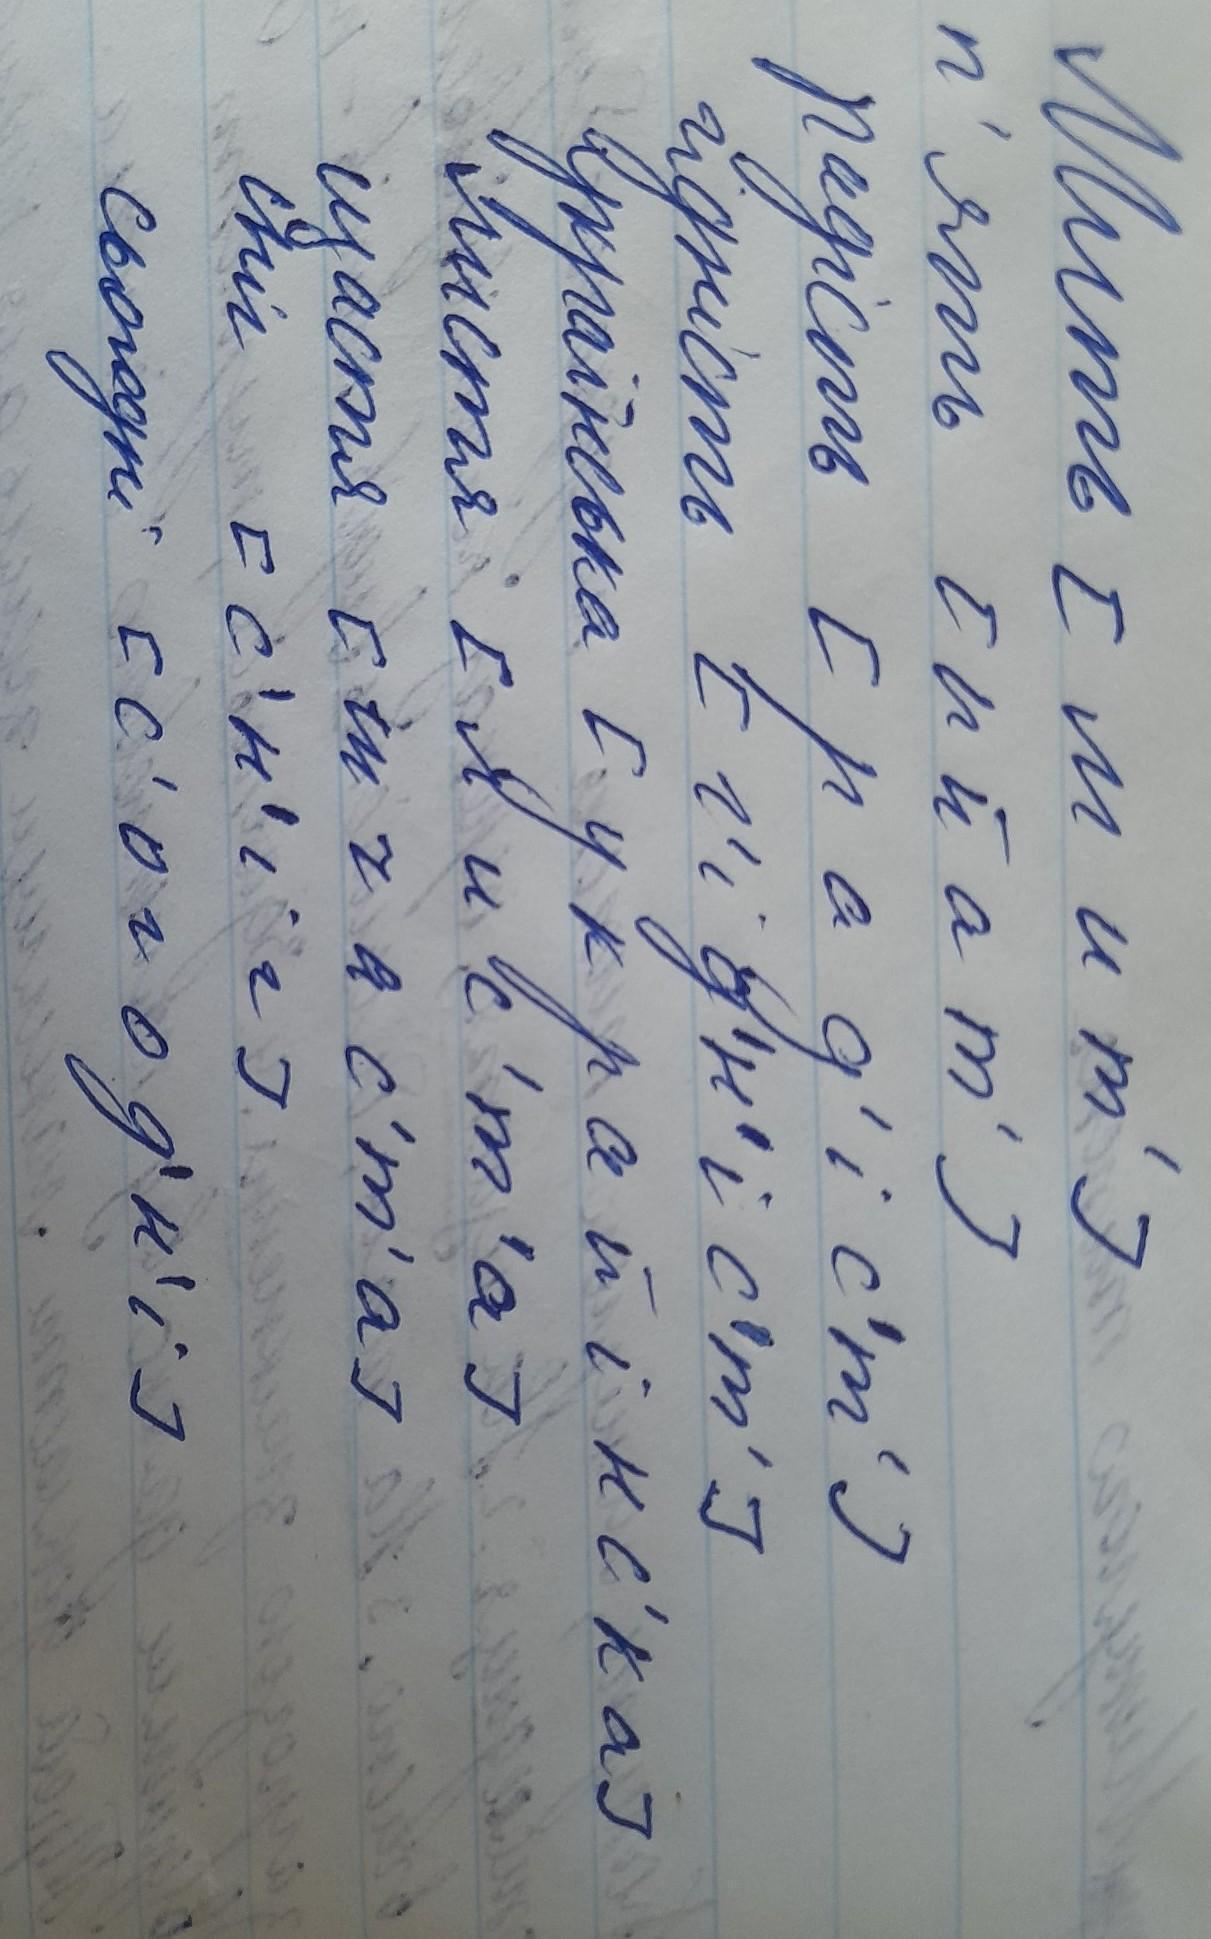 Мить [ м и т' ]
п'ять [ п й а т' ]
радість [ р а д' і с' т' ]
гідність [ г' і д' н' і с' т' ]
українська [ у к р а й і н с' к а ]
листя [ л и с' т' а ]
щастя [ ш ч а с' т' а ]
сніг [ с' н' і г ]
сьогодні [ с' о г о д' н' і ]